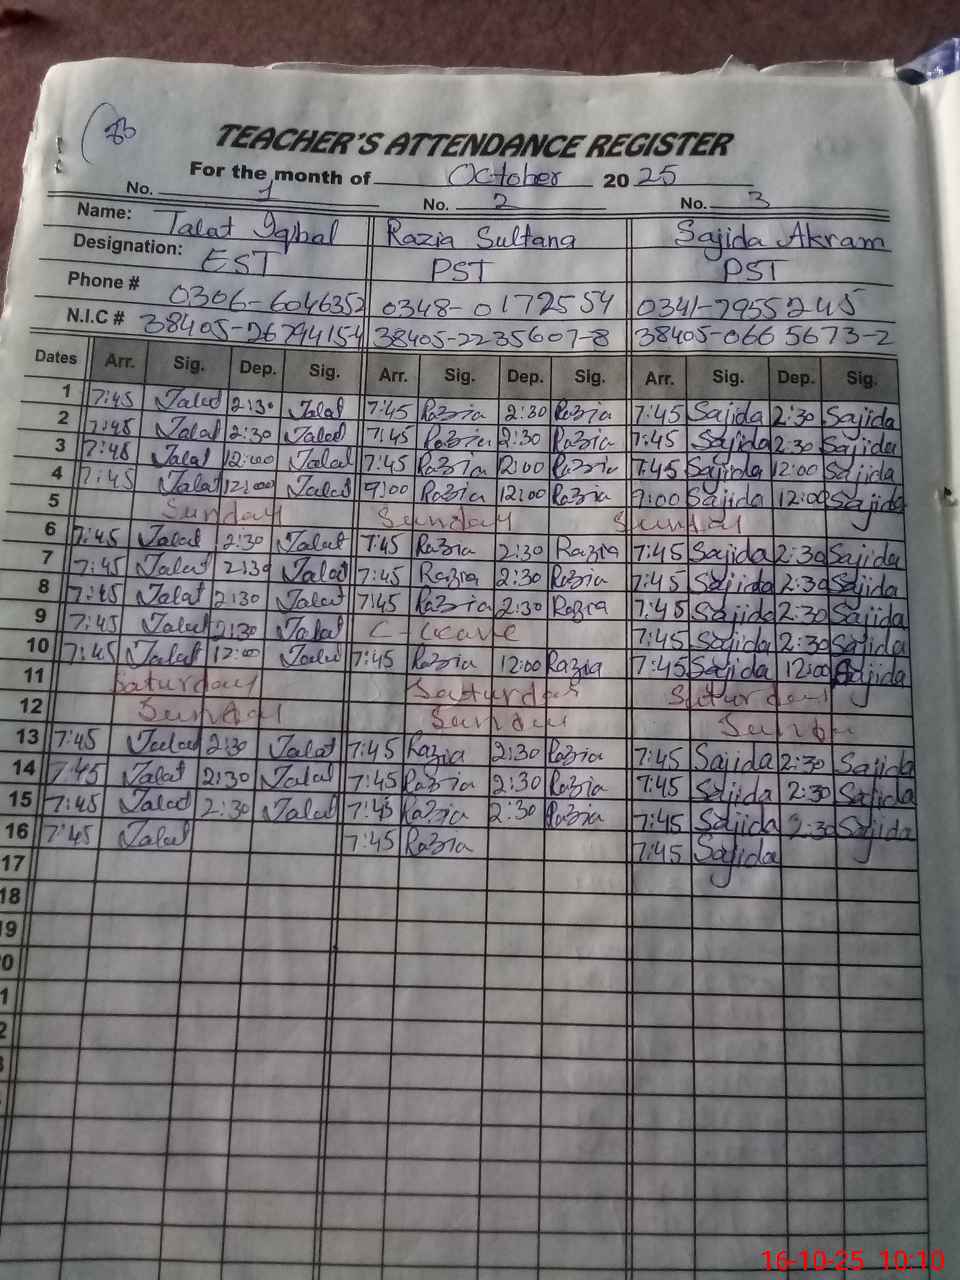 TEACHER'S ATTENDANCE REGISTER
For the month of October 20 25
No. 1 No. 2 No. 3
Name: Talat Iqbal Razia Sultana Sajida Akram
Designation: EST PST PST
Phone # 0306-6046352 0348-0172554 0341-7955245
N.I.C # 38405-2235607-8 38405-0665673-2
Dates Arr. Sig. Dep. Sig. Arr. Sig. Dep. Sig. Arr. Sig. Dep. Sig.
1 7:45 Talat 2:30 Talat 7:45 Razia 2:30 Razia 7:45 Sajida 2:30 Sajida
2 Talat 2:30 Talat 7:45 Razia 2:30 Razia 7:45 Sajida 2:30 Sajida
3 Talat 12:00 Talat 7:45 Razia 12:00 Razia 7:45 Sajida 12:00 Sajida
4 7:45 Talat 12:00 Talat 9:00 Razia 12:00 Razia 9:00 Sajida 12:00 Sajida
5 Sunday Sunday Sunday
6 7:45 Talat 2:30 Talat 7:45 Razia 2:30 Razia 7:45 Sajida 2:30 Sajida
7 7:45 Talat 2:30 Talat 7:45 Razia 2:30 Razia 7:45 Sajida 2:30 Sajida
8 7:45 Talat 2:30 Talat 7:45 Razia 2:30 Razia 7:45 Sajida 2:30 Sajida
9 7:45 Talat 2:30 Talat C-Leave 7:45 Sajida 2:30 Sajida
10 7:45 Talat 12:00 Talat 7:45 Razia 12:00 Razia 7:45 Sajida 12:00 Sajida
11 Saturday Saturday Saturday
12 Sunday Sunday Sunday
13 7:45 Talat 2:30 Talat 7:45 Razia 2:30 Razia 7:45 Sajida 2:30 Sajida
14 7:45 Talat 2:30 Talat 7:45 Razia 2:30 Razia 7:45 Sajida 2:30 Sajida
15 7:45 Talat 2:30 Talat 7:45 Razia 2:30 Razia 7:45 Sajida 2:30 Sajida
16 7:45 Talat 7:45 Razia 7:45 Sajida
17
18
19
0
1
2
16-10-25 10:10